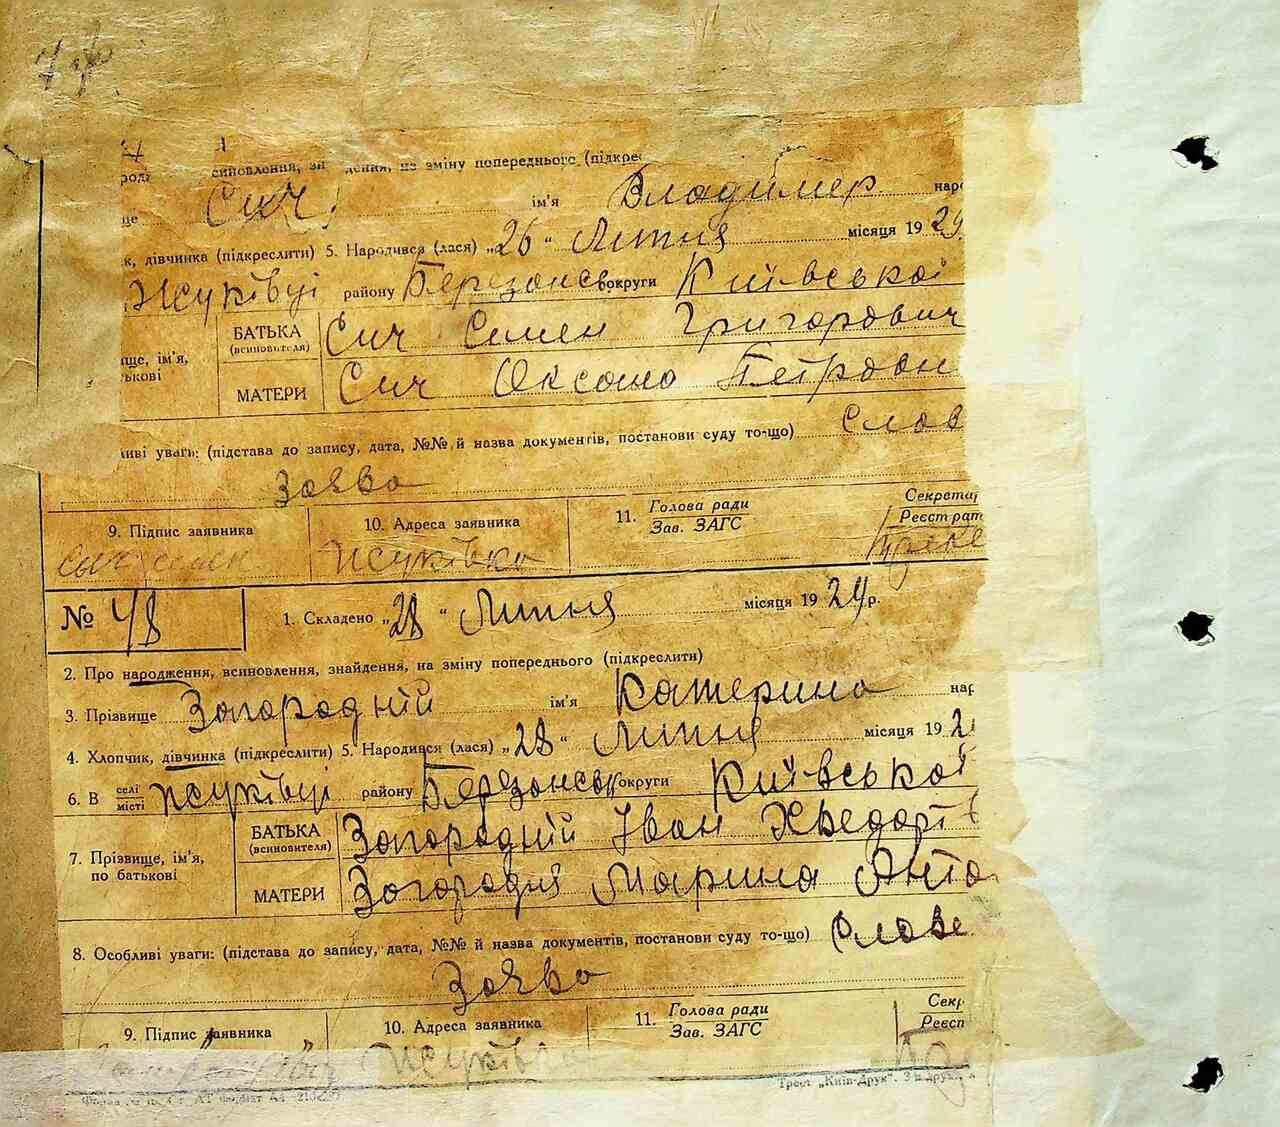 синовлення, зн дення, на зміну попереднього (підкре
ще Сич ім'я Владимер наро
к, дівчинка (підкреслити) 5. Народився (лася) „26“ Липня місяця 1929
Жуківці району Березансь округи Київської
БАТЬКА (всиновителя) Сич Семен Григорович
ще, ім'я, тькові
МАТЕРИ Сич Оксана Петровн
ливі уваги: (підстава до запису, дата, №№ й назва документів, постанови суду то-що) Слов
Заява
9. Підпис заявника 10. Адреса заявника 11. Голова ради Зав. ЗАГС Секретар Реєстрат
Сыч Жуківка
№ 48 1. Складено „28“ Липня місяця 1929 р.
2. Про народження, всиновлення, знайдення, на зміну попереднього (підкреслити)
3. Прізвище Загородній ім'я Катерина нар
4. Хлопчик, дівчинка (підкреслити) 5. Народився (лася) „28“ Липня місяця 192
6. В селі місті Жуківці району Березансь округи Київської
БАТЬКА (всиновителя) Загородній Іван Хведорів
7. Прізвище, ім'я, по батькові
МАТЕРИ Загородня Марина Анто
8. Особливі уваги: (підстава до запису, дата, №№ й назва документів, постанови суду то-що) Слове
Заява
9. Підпис заявника 10. Адреса заявника 11. Голова ради Зав. ЗАГС Секр Реєст
Жуківка
Трест „Київ-Друк“.